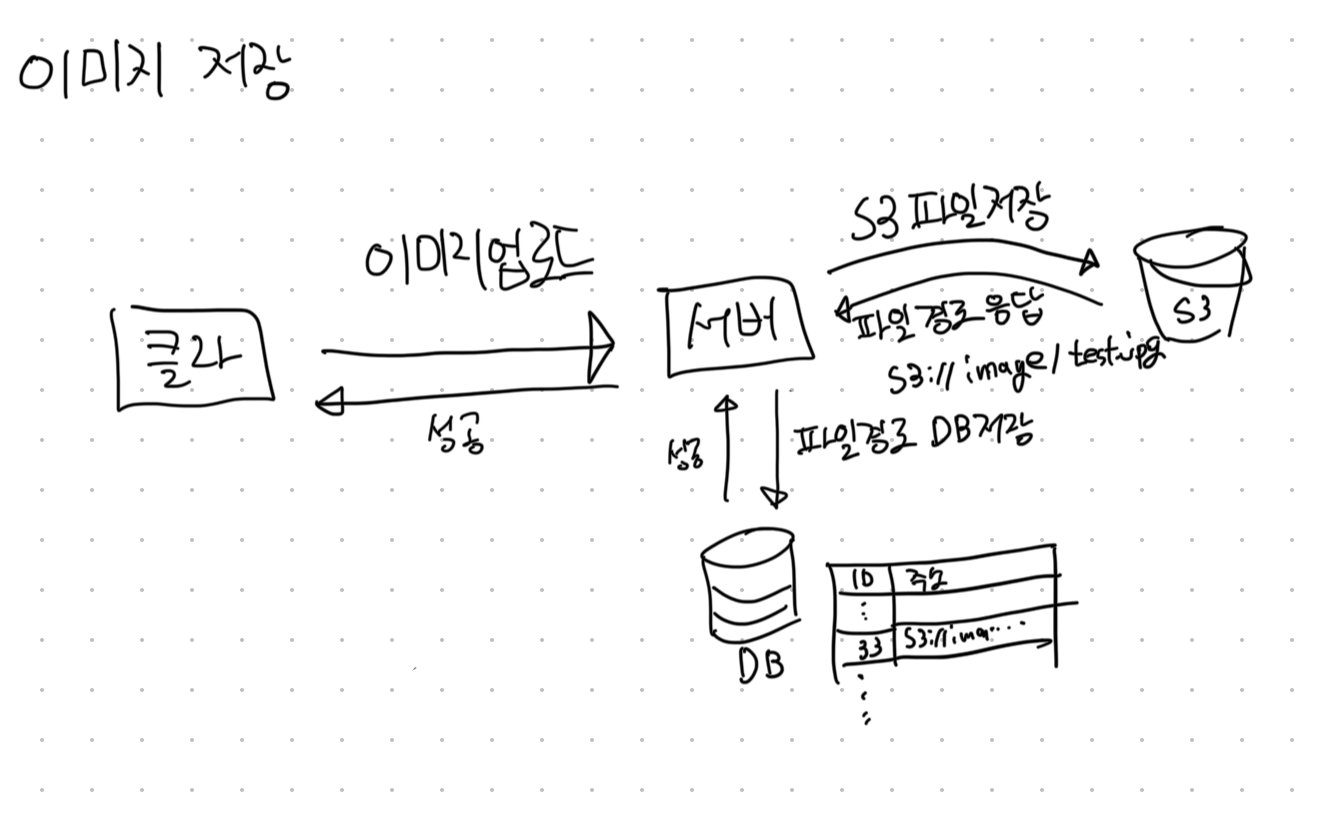 이미지 저장
이미지업로드
클라
성공
서버
S3 파일저장
파일경로응답
S3://image/test.jpg
S3
성공
파일경로 DB저장
DB
ID 주소
⋮
33 S3://ima....
⋮